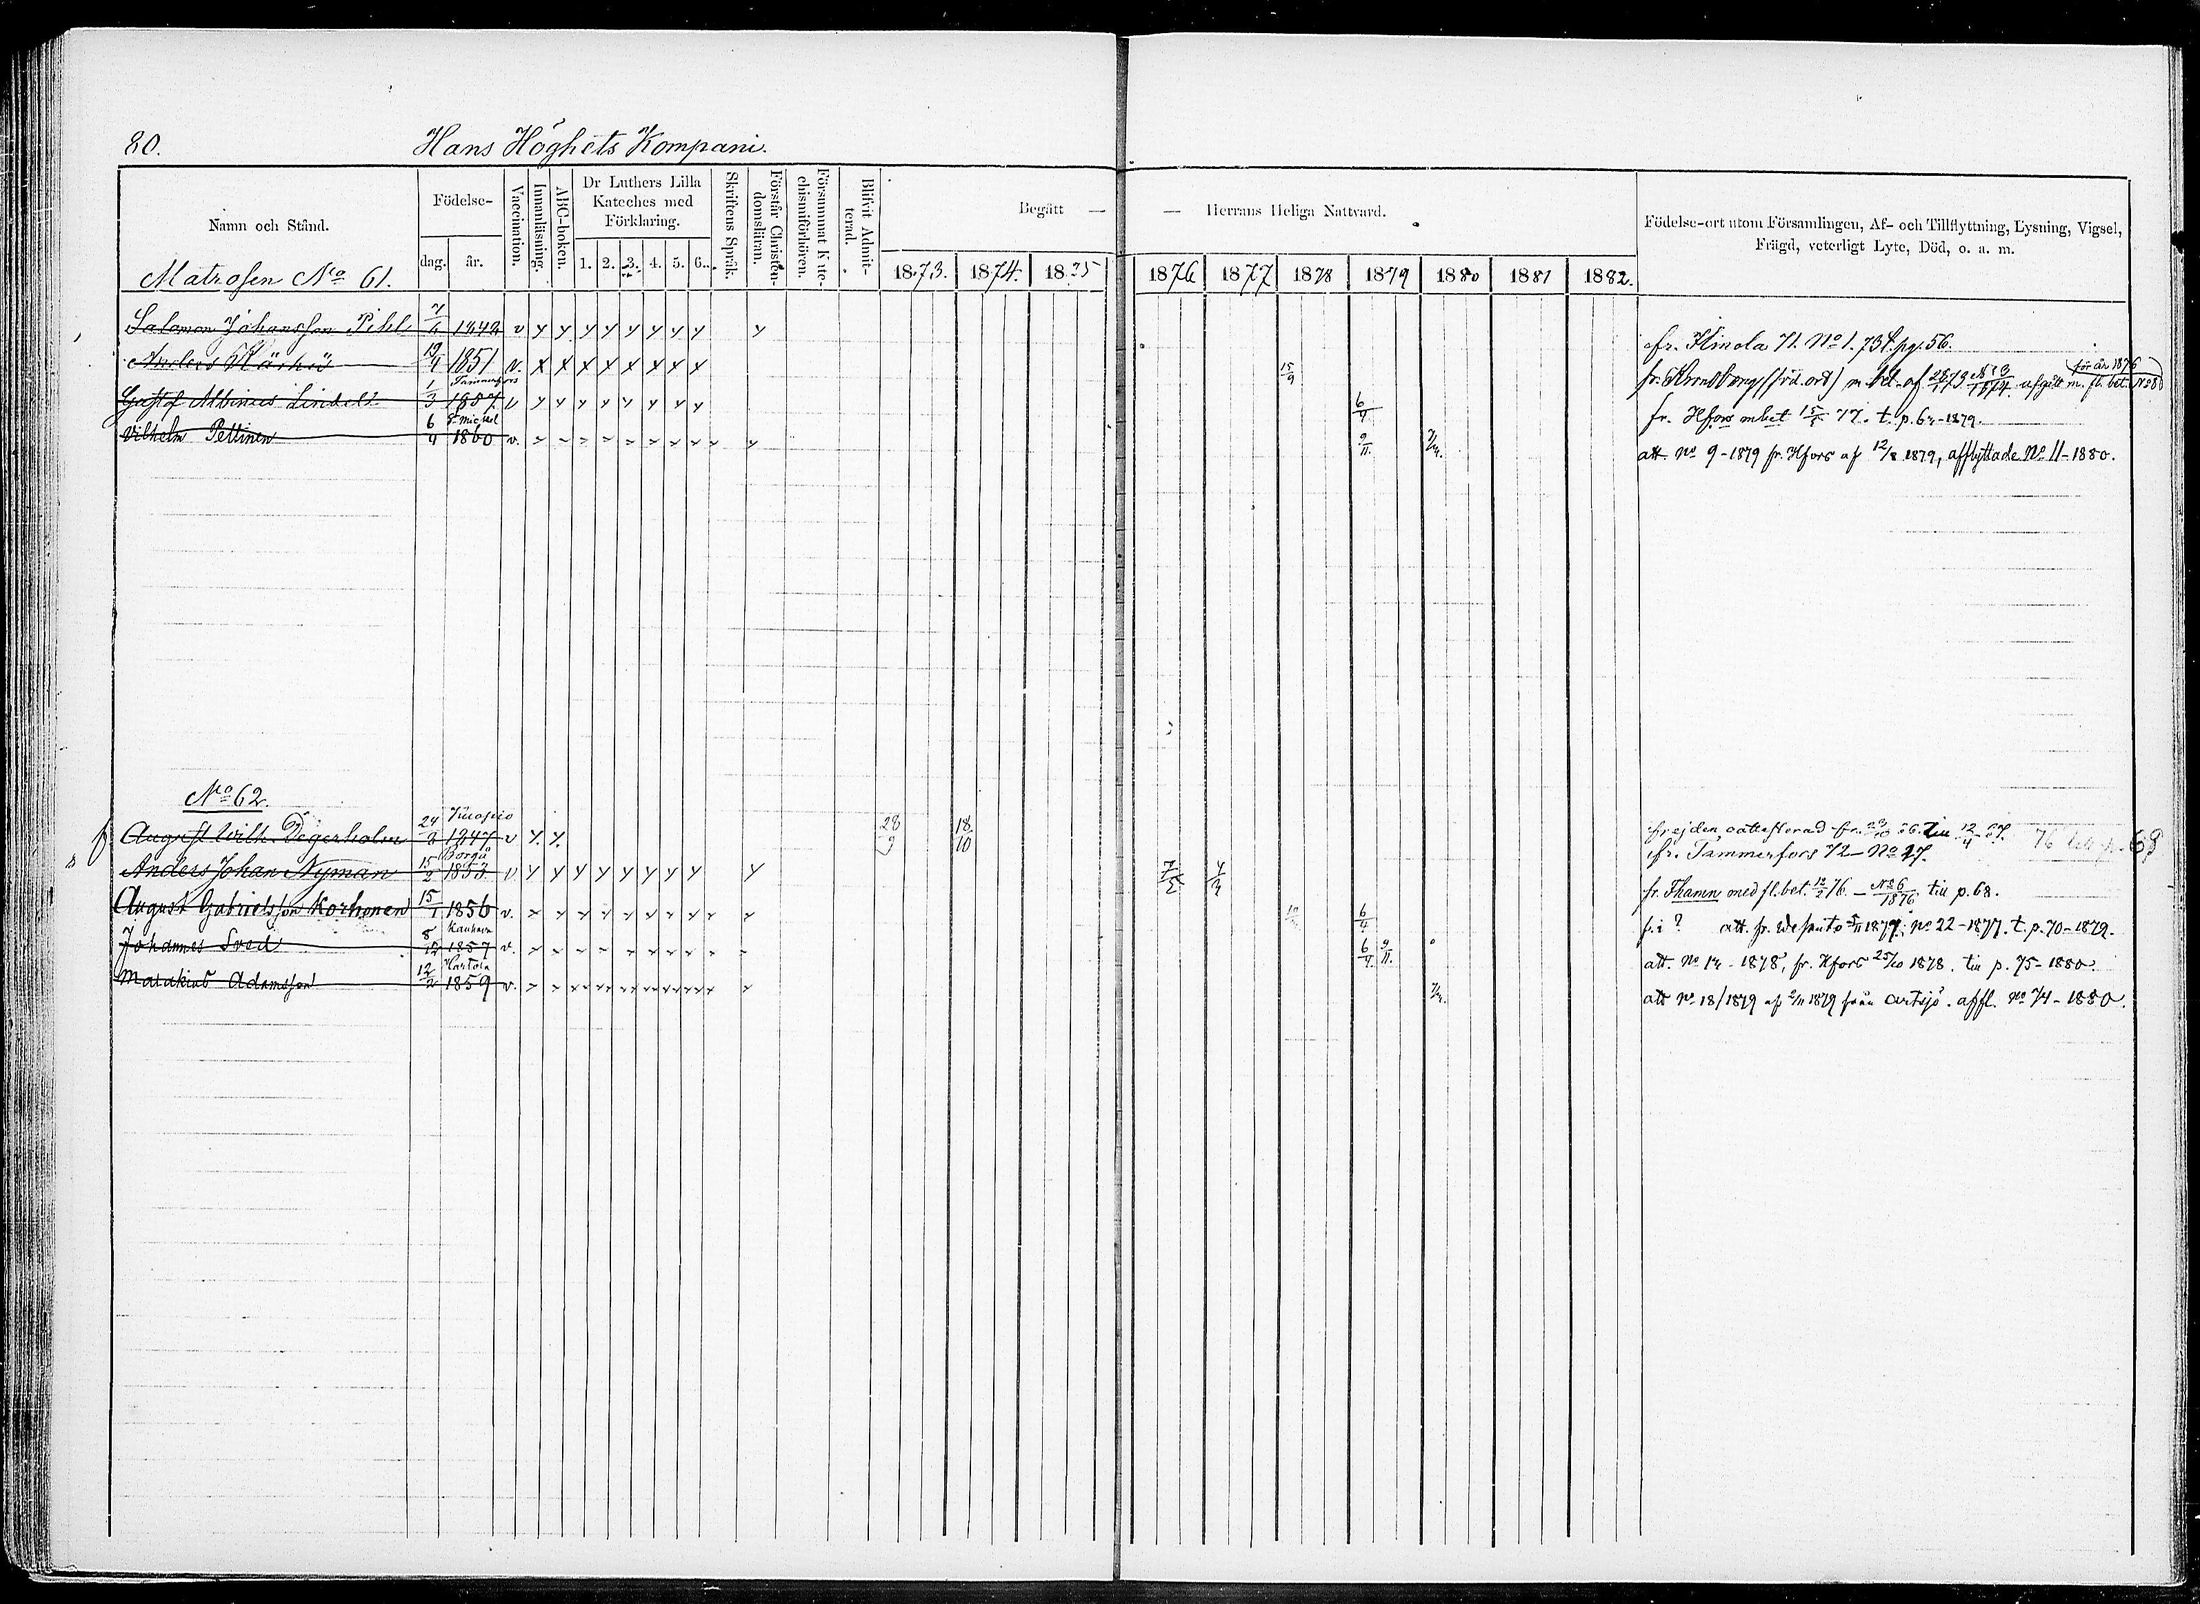 80. Hans Höghets Kompani.
Namn och Stånd.
Födelse-
dag. år.
Vaccination.
Innanläsning.
ABC-boken.
Dr Luthers Lilla
Kateches med
Förklaring.
1. 2. 3. 4. 5. 6.
Skriftens Språk.
Förstår Christen-
domsläran.
Försummat Kate-
chismiförhören.
Blifvit Admit-
terad.
Begått — — Herrans Heliga Nattvard.
1873. 1874. 1875 1876 1877 1878 1879 1880 1881 1882.
Födelse-ort utom Församlingen, Af- och Tillflyttning, Lysning, Vigsel,
Frägd, veterligt Lyte, Död, o. a. m.
Matrosen No 61.
Salomon Johansson Pihl 1842 v fr. 71. No 1. 73 t. pg. 56.
Anders Kärhö 19/4 1851 v. 15/9 (föd. ort) m. bet. af No 3 1874. m. fl. bet. för år 1876
Tammerfors
Gustaf Albinus 1/3 1857 v 6/4 fr. Hfors 77. t. p. 64-1879.
St Michel
Vilhelm Pettinen 6/4 1860 v. 9/11 att. No 9-1879 fr. Hfors af 12/8 1879, afflyttade No 11-1880.
No 62.
Kuopio
August Wilh. Degerholm 24/8 1847 v 28/9 18/10 frejden 76 till p. 68
Borgå
Anders Johan Nyman 15/2 1853 v 7/5 fr. Tammerfors 72 - No 17.
August Gabrielsson Korhonen 15/1 1856 v. 6/4 fr. Thamn med fl. bet. 12/2 76. - No 6/1876 till p. 68.
Kauhava
Johannes Sved 8/12 1857 v. 6/4 9/11 f. i ? att. fr. 1877. No 22-1877. t. p. 70-1879.
att. No 14-1878, fr. Hfors 25/10 1878. till p. 75-1880.
Hartola
Matakias Adamsson 12/2 1859 v. att No 18/1879 af 1879 från Artsjö. affl. No 74-1880.